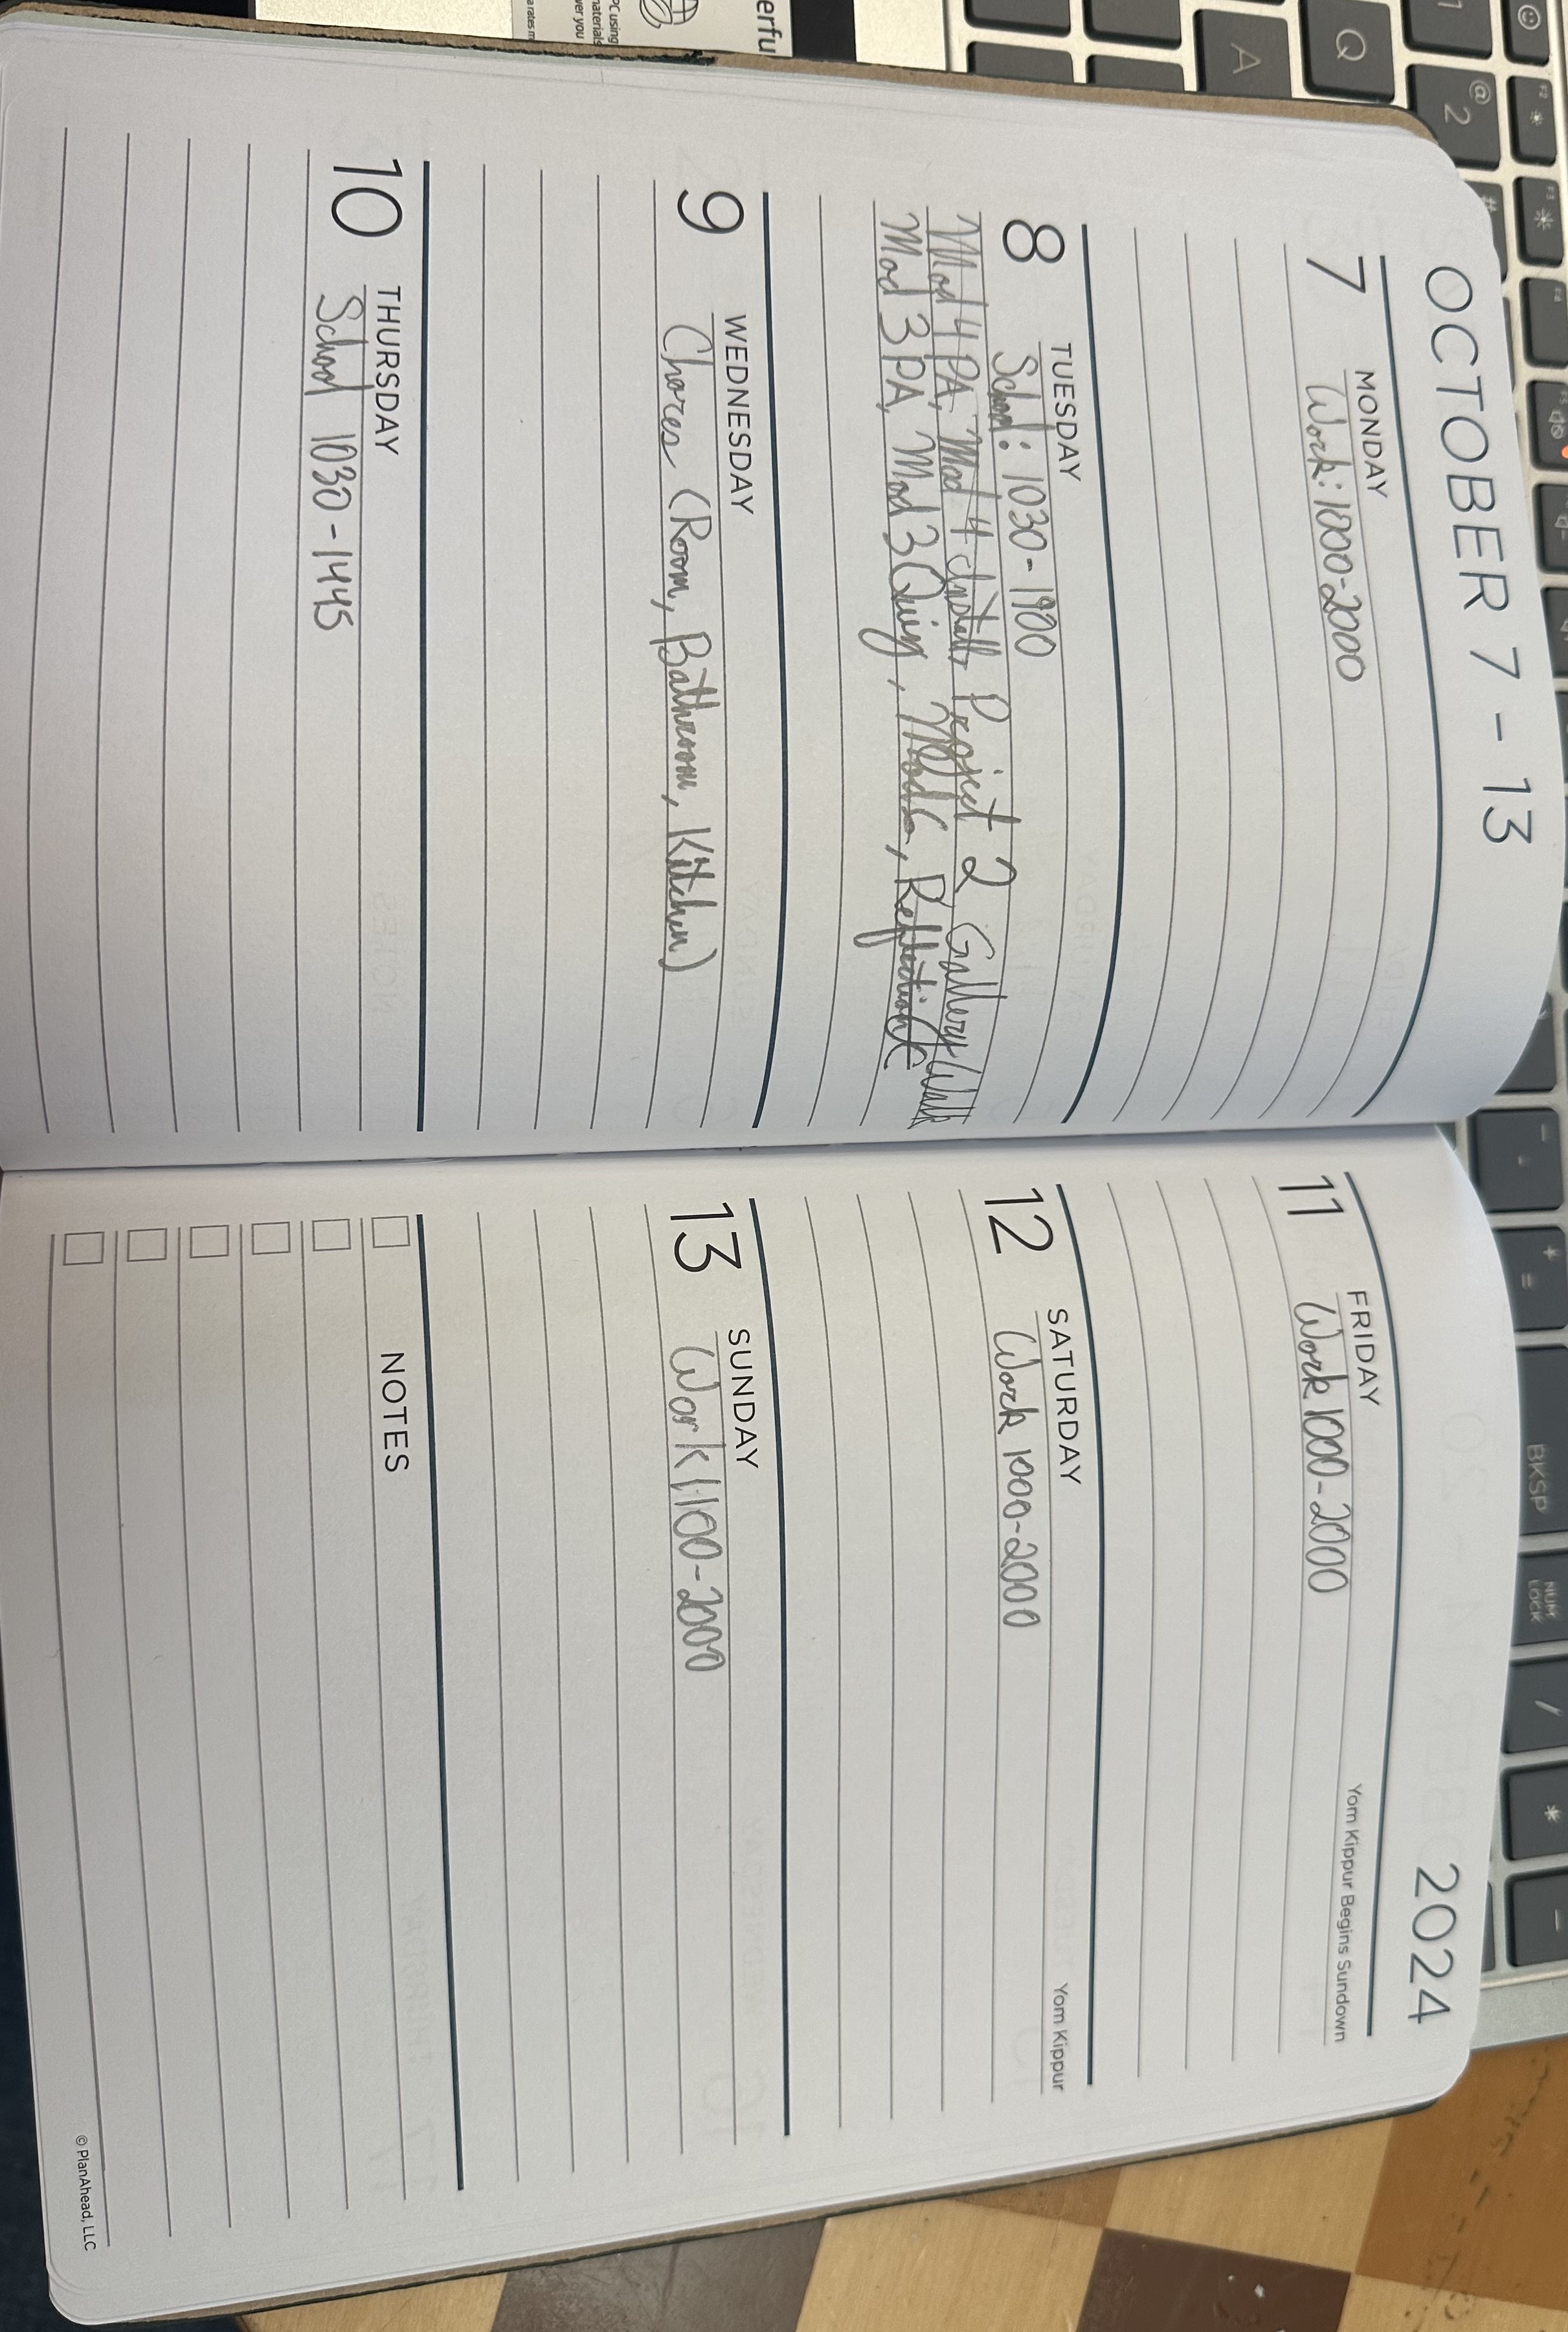 OCTOBER 7 - 13
7 MONDAY
Work: 1000-2000
8 TUESDAY
School: 1030-1900
Mod 4 PA, Mod 4 Install, Project 2 Gallery Walk
Mod 3 PA, Mod 3 Quiz, Reflection
9 WEDNESDAY
Chores (Room, Bathroom, Kitchen)
10 THURSDAY
School 1030-1445
2024
11 FRIDAY
Yom Kippur Begins Sundown
Work 1000-2000
12 SATURDAY
Yom Kippur
Work 1000-2000
13 SUNDAY
Work 1100-2000
NOTES
© PlanAhead, LLC
erfu
PC using
materials
ver you
Q
A
1
@
2
#
F2
F3
F4
F5
BKSP
NUM
LOCK
+
=
/
*
-